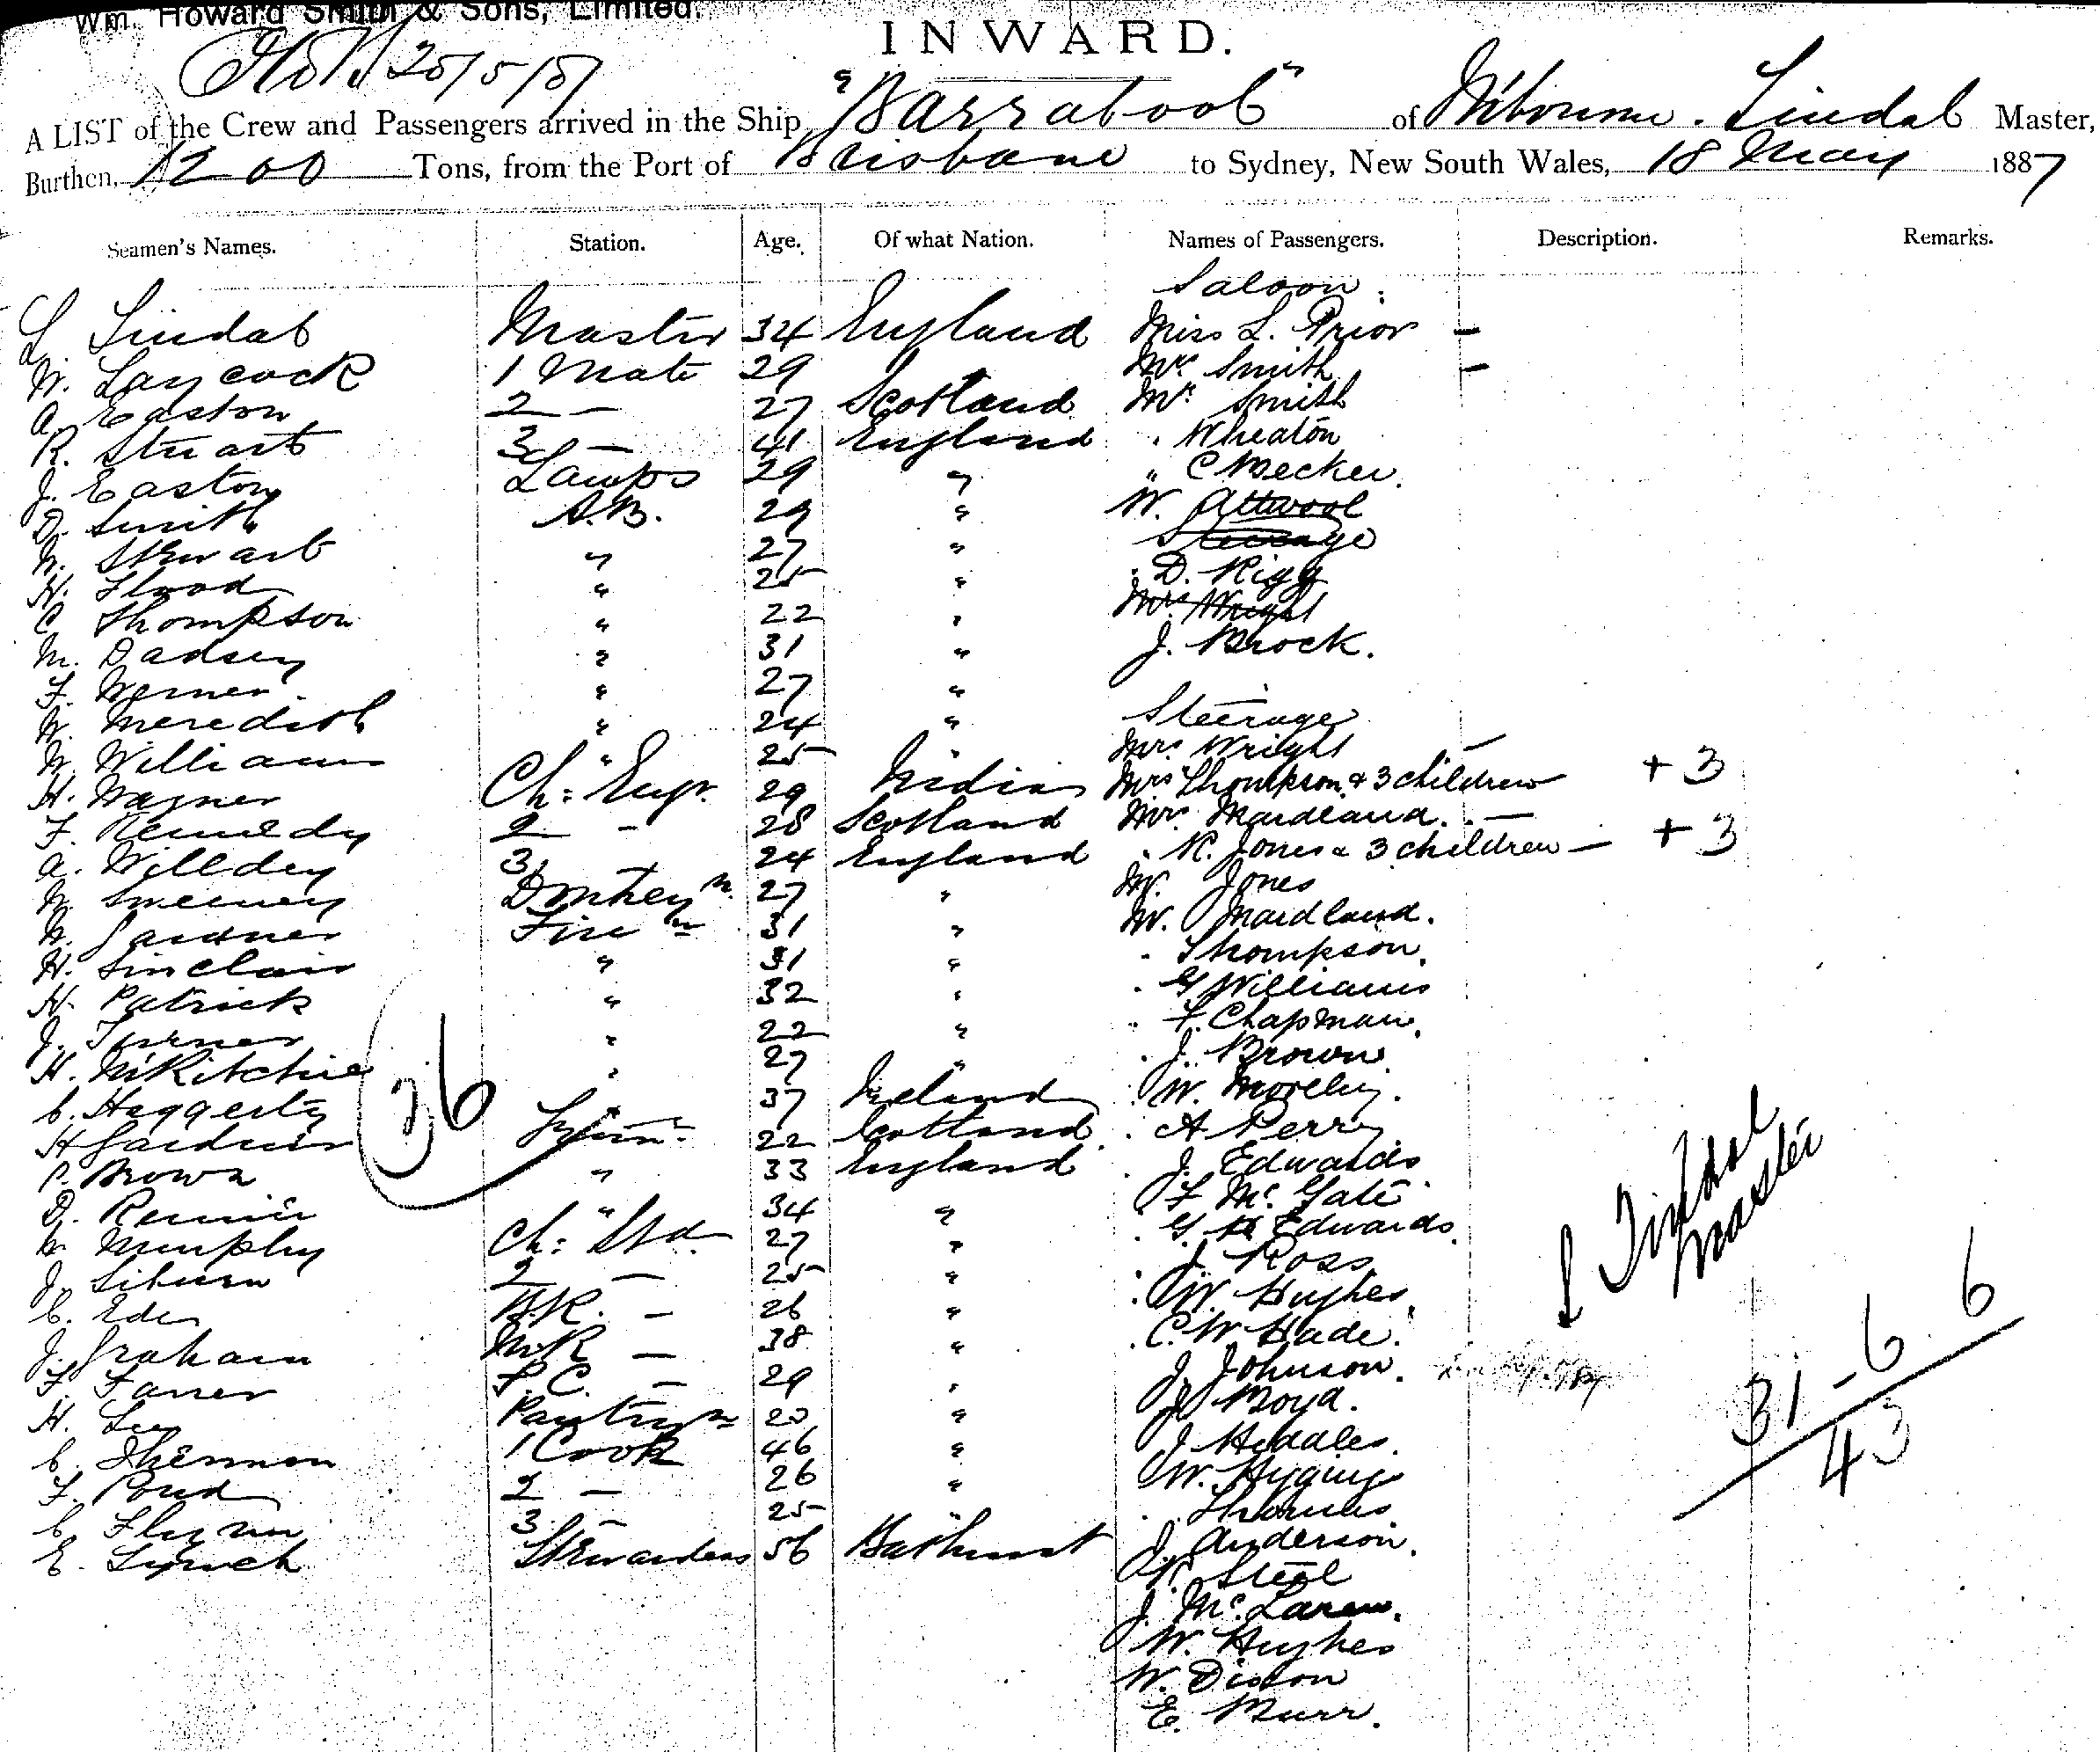 Wm. Howard Smith & Sons, Limited.
INWARD.
A LIST of the Crew and Passengers arrived in the Ship "Barrabool" of Melbourne. Lindal Master,
Burthen, 1200 Tons, from the Port of Brisbane to Sydney, New South Wales, 18 May 1887
Seamen's Names. Station. Age. Of what Nation. Names of Passengers. Description. Remarks.
Saloon.
L Lindal Master 34 England Miss L. Prior —
W. Laycock 1 Mate 29 " Mr. Smith —
A. Easton 2 — 27 Scotland Mr. Smith
R. Stuart 3 — 41 England " Wheaton
J. Easton Lamps 29 " " C Becker.
D. Smith A.B. 29 " W. Attwool
W. Stewart " 27 " Steerage
H. Flood " 25 " D. Rigg
C Thompson " 22 " Mrs Wright
M. Dadsey " 31 " J. Brock.
F. Werner " 27 "
W. Meredith " 24 " Steerage
W. Williams " 25 " Mrs. Wright —
H. Wagner Ch: Engr. 29 India Mrs Thompson & 3 children + 3
F. Kennedy 2 — 28 Scotland Mrs. Mardland. —
A. Willdey 3 24 England " R. Jones & 3 children — + 3
W. Sweeney Donkeym. 27 " Mr. Jones
W. Gardner Firem 31 " Mr. Mardland.
H. Sinclair " 31 " " Thompson.
H. Patrick " 32 " " G Williams
J. Turner " 22 " " F. Chapman.
H. McRitchie " 27 " " J. Brown
C. Haggerty " 37 Ireland " W. Moreby.
H Gardner Trimr. 22 Scotland " A Perry
P. Brown " 33 England " J. Edwards
D. Rennie " 34 " " F. Mc. Gate
W Murphy Ch: Std. 27 " " G. H Edwards.
J. 2 — 25 " " J Ross
C. Eden B.R. — 26 " " W. Hughes.
J. Graham M.R — 38 " " C. W Hade.
F. Farrer F.C. — 29 " J. Johnson.
H. Lee Pantrym " J. Boyd.
C. Shermon 1 Cook 46 " J Heddles.
F. Pond 2 — 26 " W. Higgins
C. Flynn 3 — 25 " " Thomas.
E. Lynch Stewardess 56 Bathurst J. Anderson.
Steel
J. Mc. Laren.
W. Hughes
W. Dixon
E. Burr.
36
L Lindal
Master
31 - 6 6
43